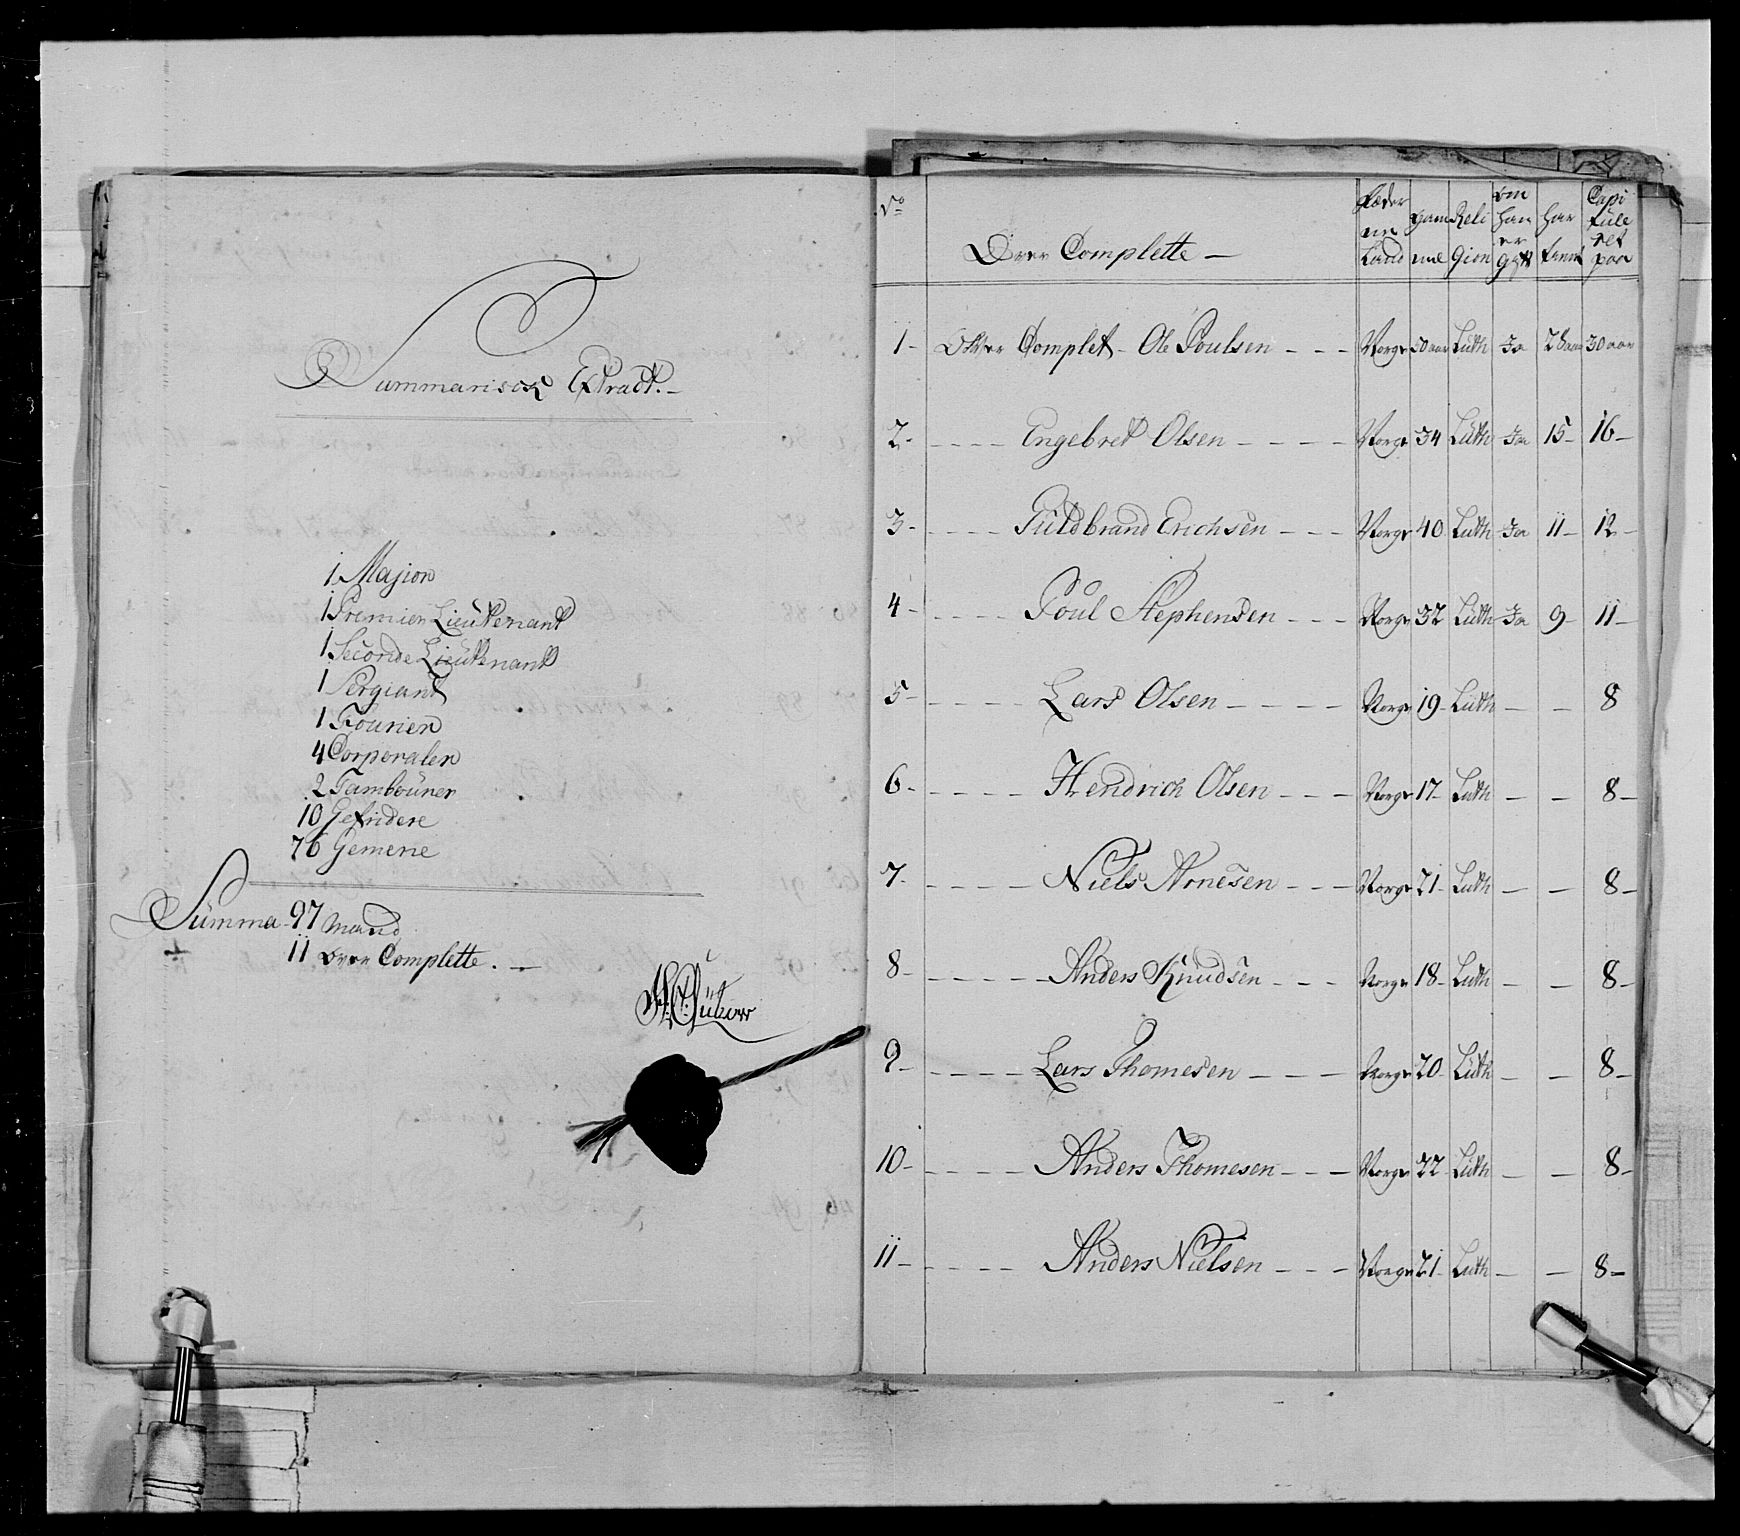 Summarisck Extract.
1 Majior
1 Premier Lieutenant
1 Seconde Lieutenant
1 Sergiant
1 Fourier
4 Corporaler
2 Tambouner
10 Gefridere
76 Gemene
Summa 97 Mand
11 over Complette.
No
Over Complette
Fæder
ne
Land
gam
mel
Reli
gion
om
han
er
gift
har
tient
Capi
tule
ret
paa
1 Over Complet Ole Poulsen Norge 50 aar Luth Ja 28 aar 30 aar
2 Engebret Olsen Norge 34 Luth Ja 15 16
3 Guldbrand Erichsen Norge 40 Luth Ja 11 12
4 Poul Stephensen Norge 32 Luth Ja 9 11
5 Lars Olsen Norge 19 Luth 8
6 Hendrich Olsen Norge 17 Luth 8
7 Niels Aonesen Norge 21 Luth 8
8 Anders Knudsen Norge 18 Luth 8
9 Lars Thomesen Norge 20 Luth 8
10 Anders Thomesen Norge 22 Luth 8
11 Anders Nielsen Norge 21 Luth 8